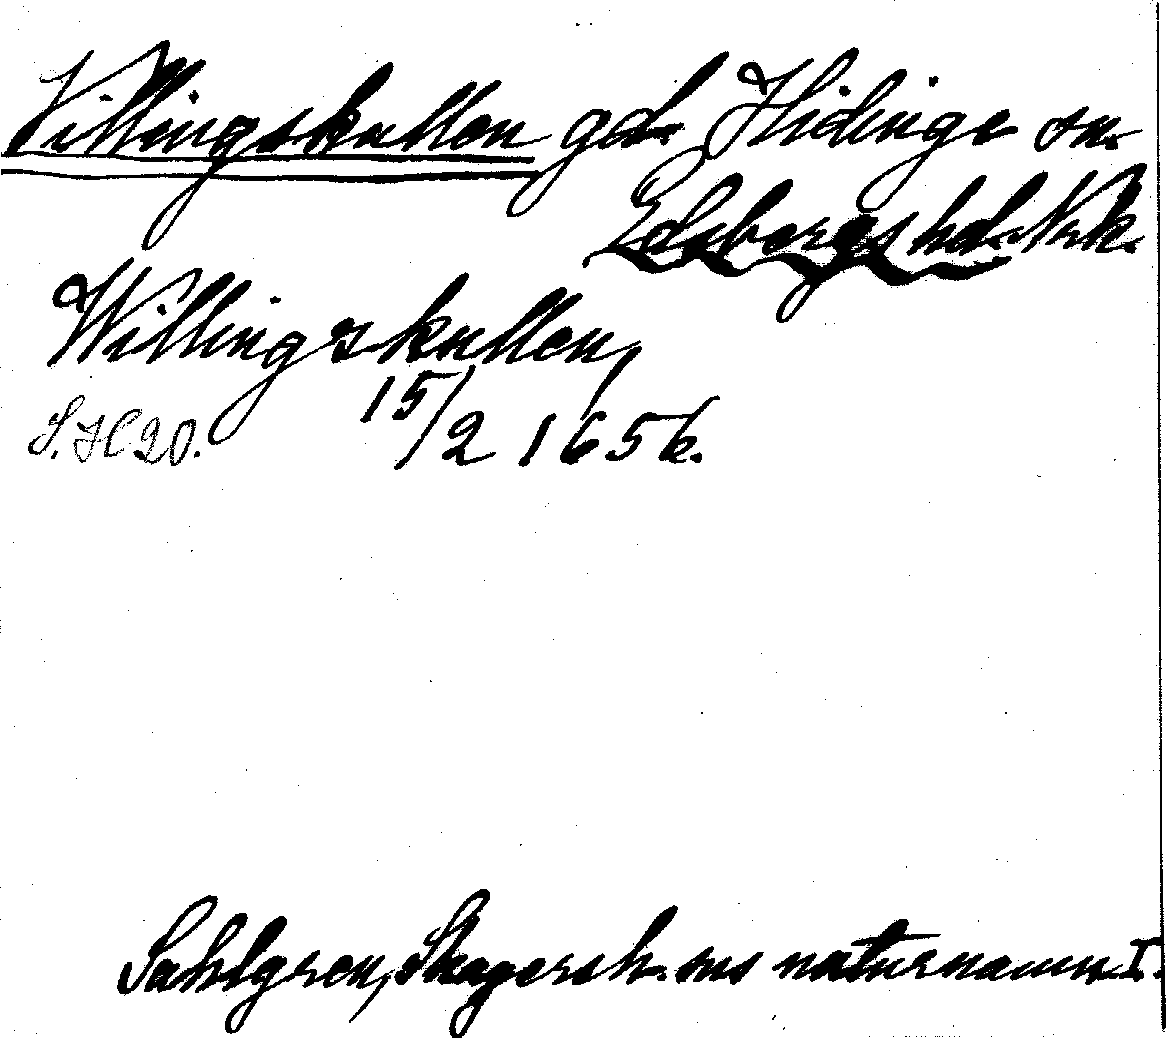 Villingskullen gd. Hidinge sn.
Edsbergs hd. Nrk.
Willingskullen,
15/2 1656 k.
S. 20.
Sahlgren, Skagersh. sns naturnamn I.